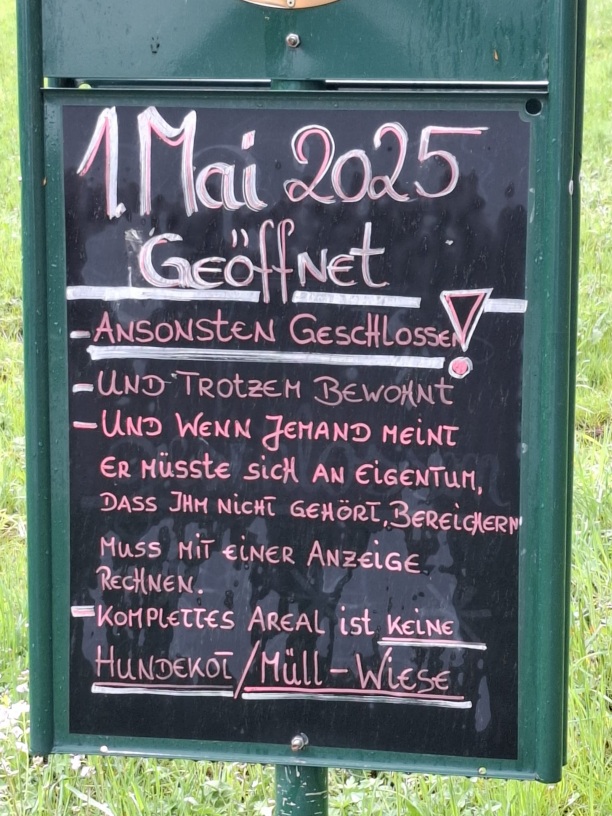 1. Mai 2025
GEÖffNET
- ANSONSTEN GESCHLOSSEN!
- UND TROTZEM BEWOHNT
- UND WENN JEMAND MEINT
ER MÜSSTE SICH AN EIGENTUM,
DASS IHM NICHT GEHÖRT, BEREICHERN
MUSS MIT EINER ANZEIGE
RECHNEN.
- KOMPLETTES AREAL ist KEINE
HUNDEKOT/MÜLL-WIESE